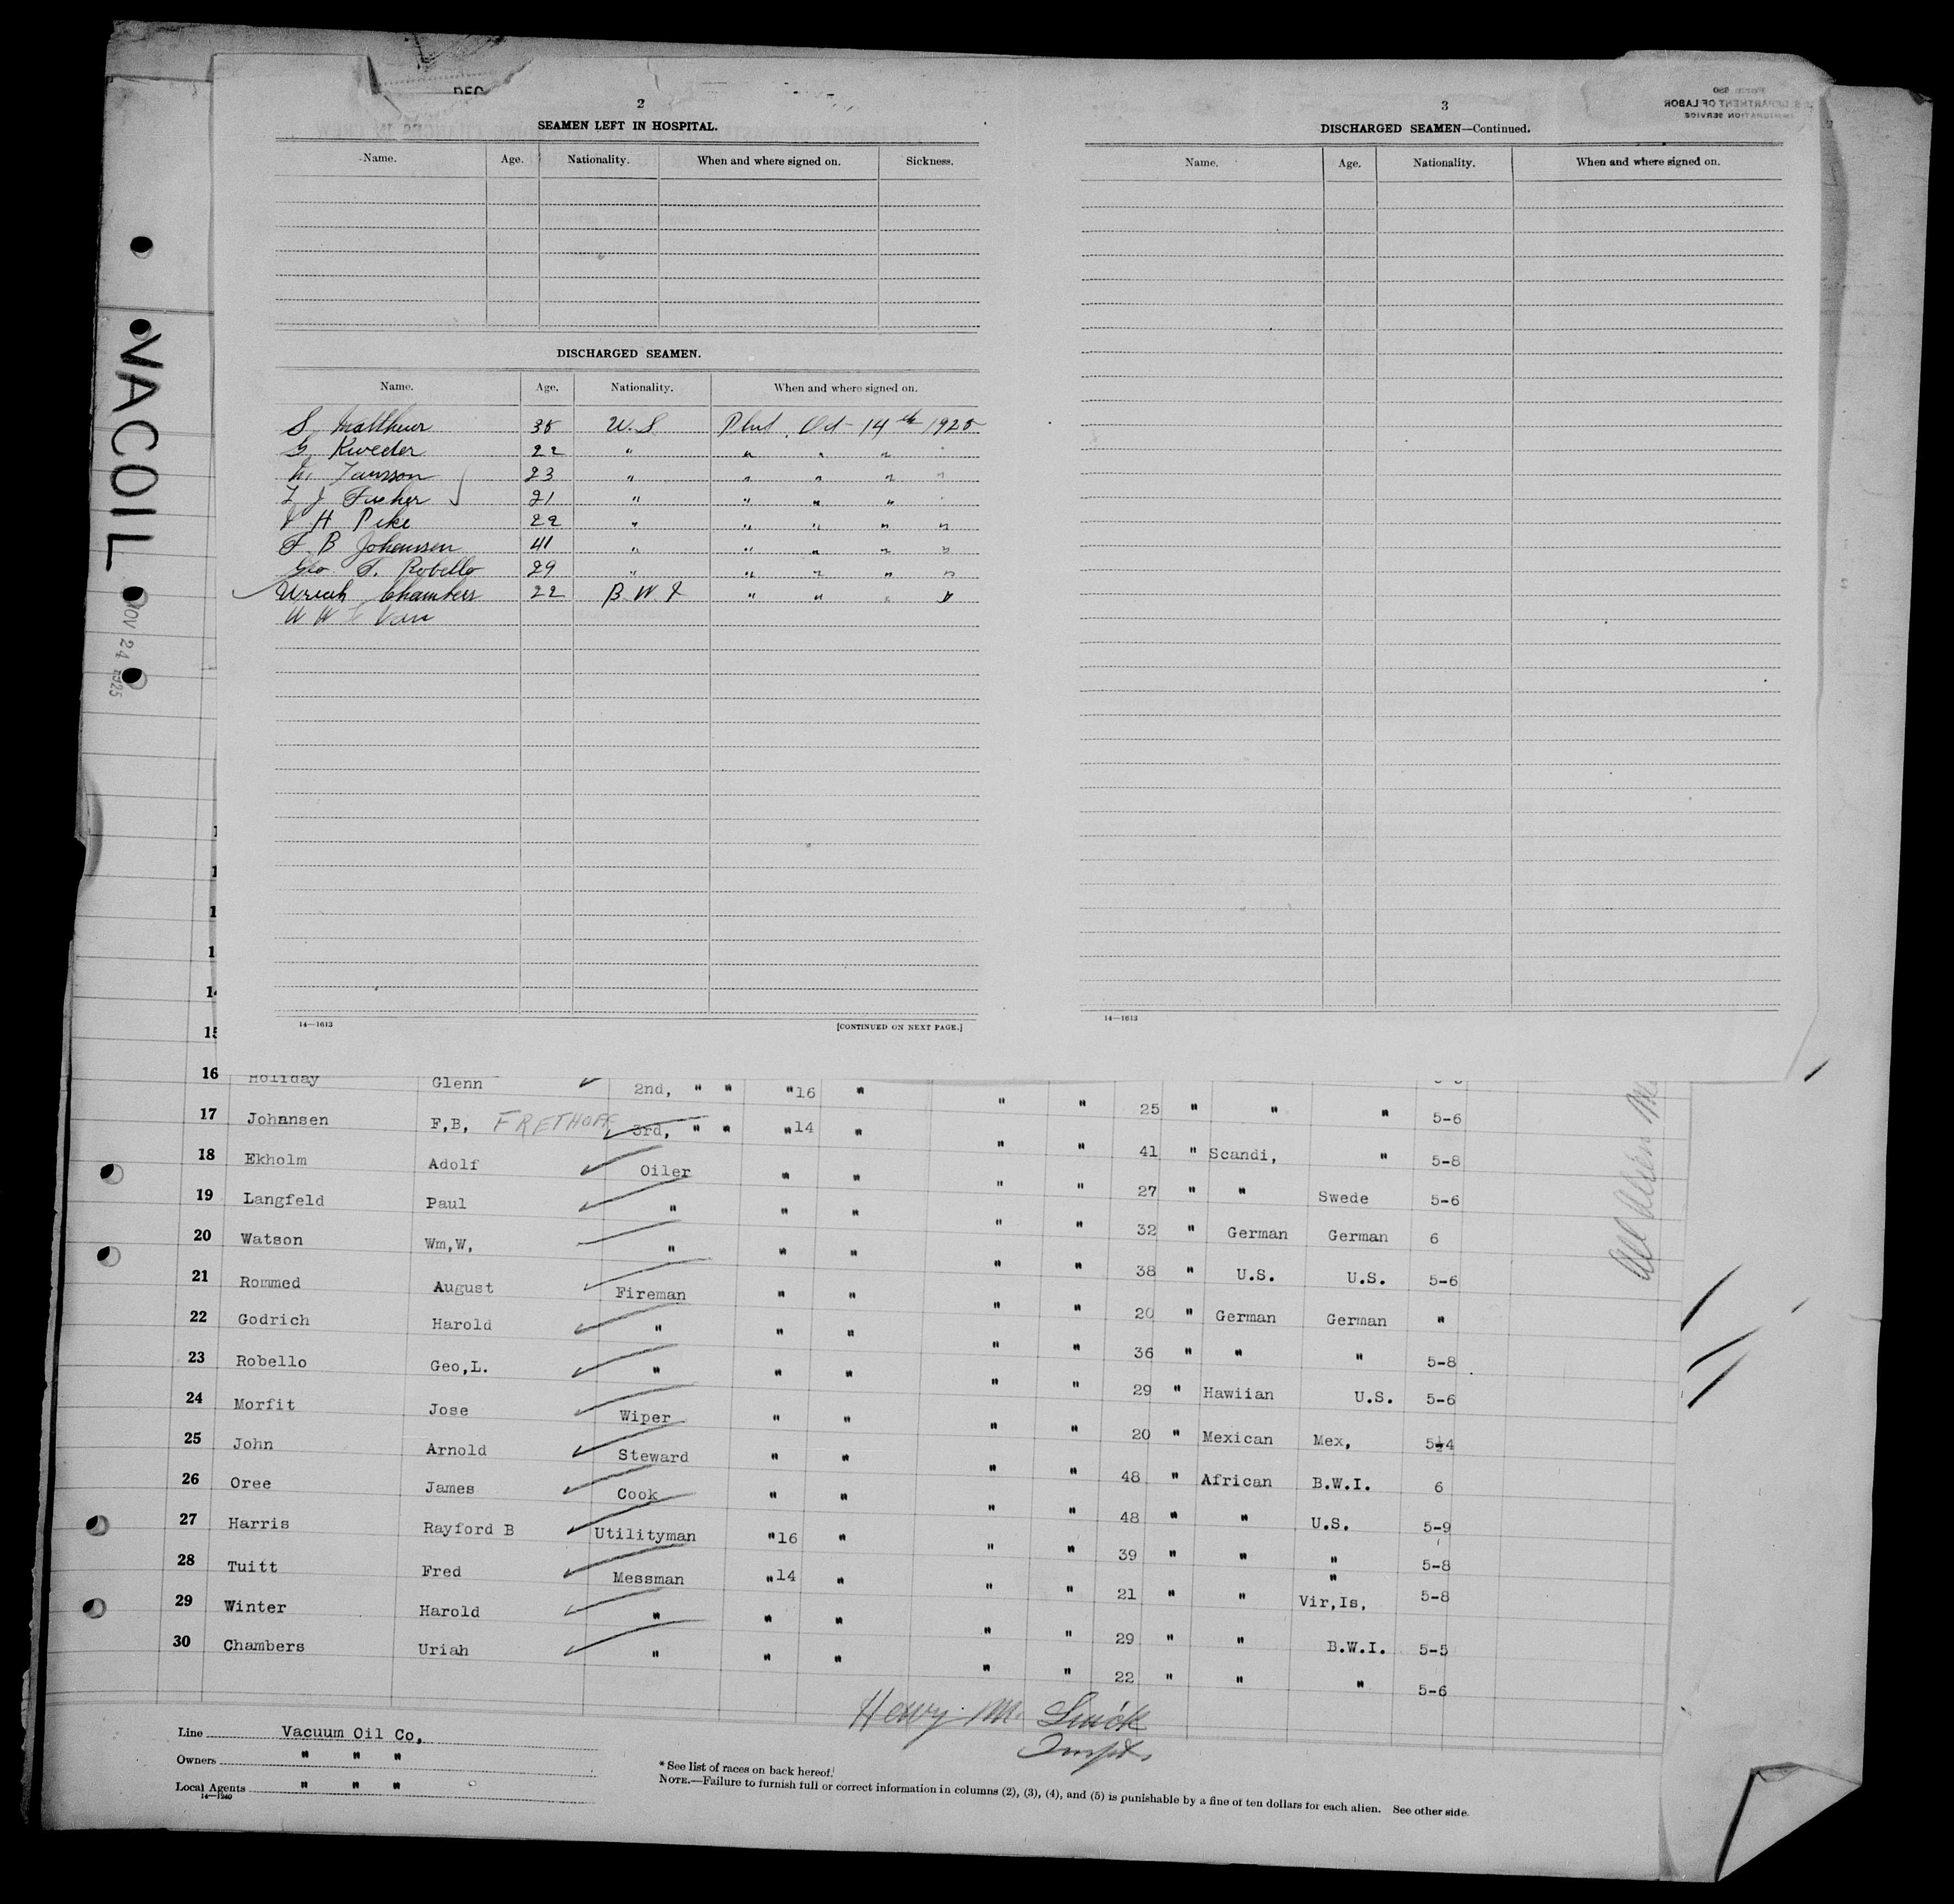 VACOIL
NOV 24 1925
DEC
2
SEAMEN LEFT IN HOSPITAL.
Name. Age. Nationality. When and where signed on. Sickness.
DISCHARGED SEAMEN.
Name. Age. Nationality. When and where signed on.
S. Matthews 35 U.S. Phil. Oct 14th 1925
G. Kweder 22 " " " " "
Jansson 23 " " " " "
J Fucher 21 " " " " "
H Pike 22 " " " " "
F. B Johansen 41 " " " " "
Geo. F. Robello 29 " " " " "
Uriah Chambers 22 B.W.I " " " "
W H Van
14—1613 [CONTINUED ON NEXT PAGE.]
3
Form 680
U. S. DEPARTMENT OF LABOR
IMMIGRATION SERVICE
DISCHARGED SEAMEN—Continued.
Name. Age. Nationality. When and where signed on.
14—1613
14
15
16 Holiday Glenn 2nd, " " "16 " " " 25 " " " 5-6
17 Johansen F,B, FRETHOFF 3rd, " " "14 " " " 41 " Scandi, " 5-8
18 Ekholm Adolf Oiler " " " " 27 " " Swede 5-6
19 Langfeld Paul " " " " " 32 " German German 6
20 Watson Wm,W, " " " " " 38 " U.S. U.S. 5-6
21 Rommed August Fireman " " " " 20 " German German "
22 Godrich Harold " " " " " 36 " " " 5-8
23 Robello Geo,L. " " " " " 29 " Hawiian U.S. 5-6
24 Morfit Jose Wiper " " " " 20 " Mexican Mex, 5½4
25 John Arnold Steward " " " " 48 " African B.W.I. 6
26 Oree James Cook " " " " 48 " " U.S. 5-9
27 Harris Rayford B Utilityman "16 " " " 39 " " " 5-8
28 Tuitt Fred Messman "14 " " " 21 " " Vir,Is, 5-8
29 Winter Harold " " " " " 29 " " B.W.I. 5-5
30 Chambers Uriah " " " " " 22 " " " 5-6
Henry M.
Inspt.
Line Vacuum Oil Co,
Owners " " "
Local Agents " " "
14—1240
* See list of races on back hereof.
NOTE.—Failure to furnish full or correct information in columns (2), (3), (4), and (5) is punishable by a fine of ten dollars for each alien. See other side.